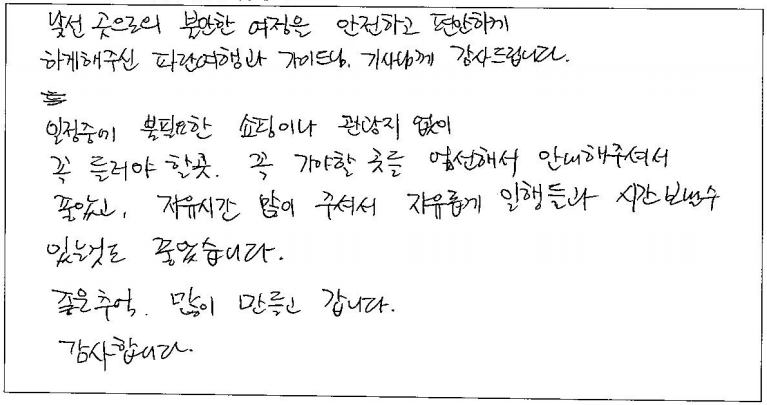 낯선 곳으로의 불안한 여정을 안전하고 편안하게
하게해주신 파란여행과 가이드님, 기사님께 감사드립니다.
일정중에 불필요한 쇼핑이나 관광지 없이
꼭 들러야 할곳. 꼭 가야할 곳를 엄선해서 안내해주셔서
좋았고, 자유시간 많이 주셔서 자유롭게 일행들과 시간보낼수
있는것도 좋았습니다.
좋은추억. 많이 만들고 갑니다.
감사합니다.